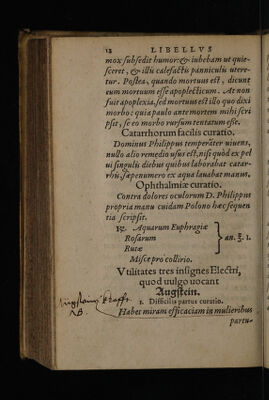 12 LIBELLVS
mox subsedit humor: & iubebam ut quie-
sceret, & illii calefactis panniculu utere-
tur. Postea, quando mortuus est, dicunt
eum mortuum esse apoplecticum. At non
fuit apoplexia, sed mortuus est illo quo dixi
morbo: quia paulo ante mortem mihi scri
psit, se eo morbo rursum tentatum esse.
Catarrhorum facilis curatio.
Dominus Philippus temperater uiuens,
nullo alio remedio usus est, nisi quòd ex pel
ui singulis diebus quibus laborabat catar-
rhis, sæpenumero ex aqua lauabat manus.
Ophthalmiæ curatio.
Contra dolores oculorum D. Philippus
propria manu cuidam Polono hæc sequen
tia scripsit.
℞. Aquarum Euphragiæ
Rosarum
Rutæ
an. ℥. I.
Misce pro collirio.
Vtilitates tres insignes Electri,
quod uulgo uocant
Augstein.
NB.
1. Difficilis partus curatio.
Habet miram efficaciam in mulieribus
partu-